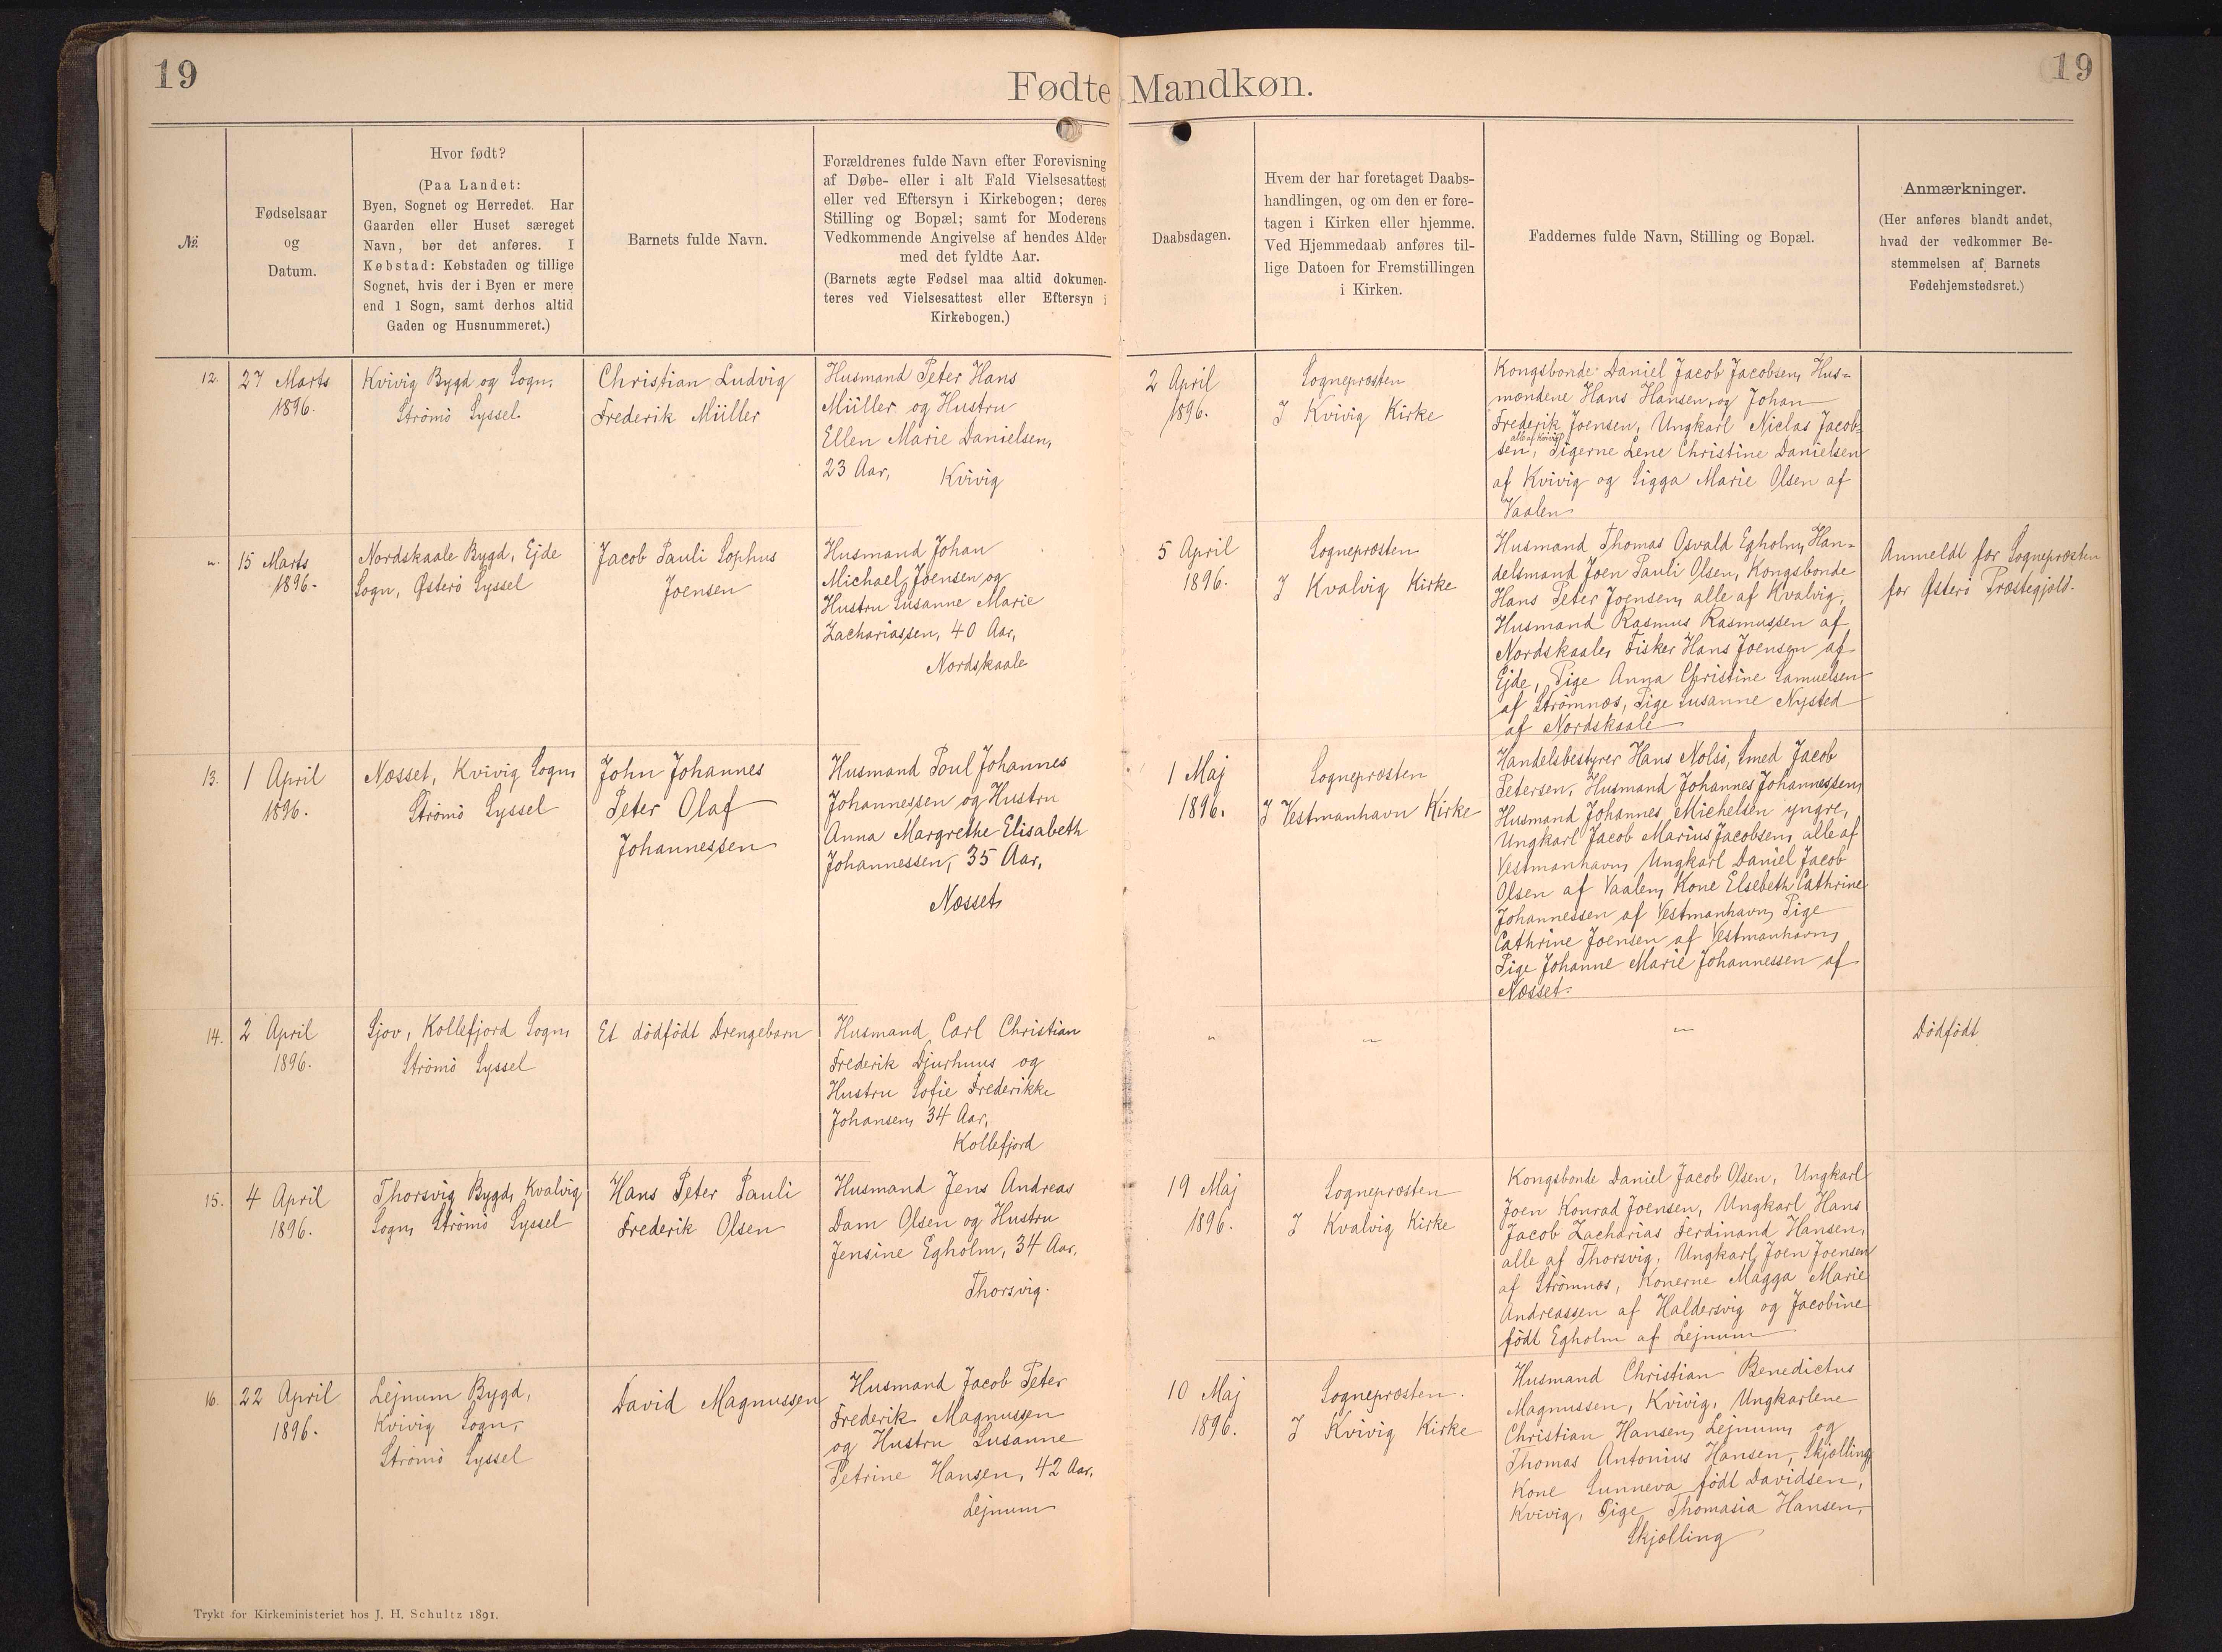 19
Fødte Mandkøn.
19
№.
Fødselsaar
og
Datum.
Hvor født?
(Paa Landet:
Byen, Sognet og Herredet. Har
Gaarden eller Huset særeget
Navn, bør det anføres. I
Købstad: Købstaden og tillige
Sognet, hvis der i Byen er mere
end 1 Sogn, samt derhos altid
Gaden og Husnummeret.)
Barnets fulde Navn.
Forældrenes fulde Navn efter Forevisning
af Døbe- eller i alt Fald Vielsesattest
eller ved Eftersyn i Kirkebogen; deres
Stilling og Bopæl; samt for Moderens
Vedkommende Angivelse af hendes Alder
med det fyldte Aar.
(Barnets ægte Fødsel maa altid dokumen-
teres ved Vielsesattest eller Eftersyn i
Kirkebogen.)
Daabsdagen.
Hvem der har foretaget Daabs-
handlingen, og om den er fore-
tagen i Kirken eller hjemme.
Ved Hjemmedaab anføres til-
lige Datoen for Fremstillingen
i Kirken.
Faddernes fulde Navn, Stilling og Bopæl.
Anmærkninger.
(Her anføres blandt andet,
hvad der vedkommer Be-
stemmelsen af Barnets
Fødehjemstedsret.)
12.
27 Marts
1896.
Kvivig Bygd og Sogn,
Strömö Syssel.
Christian Ludvig
Frederik Müller
Husmand Peter Hans
Müller og Hustru
Ellen Marie Danielsen,
23 Aar,
Kvivig
2 April
1896.
Sognepræsten
I Kvivig Kirke
Kongsbonde Daniel Jacob Jacobsen, Hus-
mændene Hans Hansen, og Johan
Frederik Joensen, Ungkarl Niclas Jacob-
alle af Kvivig
sen, Pigerne Lene Christine Danielsen
af Kvivig og Sigga Marie Olsen af
Vaalen
"
15 Marts
1896.
Nordskaale Bygd, Ejde
Sogn, Østerö Syssel
Jacob Pauli Sophus
Joensen
Husmand Johan
Michael Joensen og
Hustru Susanne Marie
Zachariassen, 40 Aar,
Nordskaale
5 April
1896.
Sognepræsten
I Kvalvig Kirke
Husmand Thomas Osvald Egholm, Han-
delsmand Joen Pauli Olsen, Kongsbonde
Hans Peter Joensen, alle af Kvalvig,
Husmand Rasmus Rasmussen af
Nordskaale, Fisker Hans Joensen af
Ejde, Pige Anna Christine Samuelsen
af Strömnæs, Pige Susanne Nysted
af Nordskaale
Anmeldt for Sognepræsten
for Østerö Præstegjæld.
13.
1 April
1896.
Næsset, Kvivig Sogn,
Strömö Syssel
John Johannes
Peter Olaf
Johannessen
Husmand Poul Johannes
Johannessen og Hustru
Anna Margrethe Elisabeth
Johannessen, 35 Aar,
Næsset
1 Maj
1896.
Sognepræsten
I Vestmanhavn Kirke
Handelsbestyrer Hans Nolsö, Smed Jacob
Petersen, Husmand Johannes Johannessen,
Husmand Johannes Michelsen yngre,
Ungkarl Jacob Marius Jacobsen, alle af
Vestmanhavn, Ungkarl Daniel Jacob
Olsen af Vaalen, Kone Elsebeth Cathrine
Johannessen af Vestmanhavn, Pige
Cathrine Joensen af Vestmanhavn,
Pige Johanne Marie Johannessen af
Næsset.
14.
2 April
1896.
Sjov, Kollefjord Sogn,
Strömö Syssel
Et dödfödt Drengebarn
Husmand Carl Christian
Frederik Djurhuus og
Hustru Sofie Frederikke
Johansen, 34 Aar,
Kollefjord
"
"
"
Dödfödt
15.
4 April
1896.
Thorsvig Bygd, Kvalvig
Sogn, Strömö Syssel
Hans Peter Pauli
Frederik Olsen
Husmand Jens Andreas
Dam Olsen og Hustru
Jensine Egholm, 34 Aar.
Thorsvig.
19 Maj
1896.
Sognepræsten
I Kvalvig Kirke
Kongsbonde Daniel Jacob Olsen, Ungkarl
Joen Konrad Joensen, Ungkarl Hans
Jacob Zacharias Ferdinand Hansen,
alle af Thorsvig, Ungkarl Joen Joensen
af Strömnæs, Konerne Magga Marie
Andreassen af Haldersvig og Jacobine
födt Egholm af Lejnum
16.
22 April
1896.
Lejnum Bygd,
Kvivig Sogn,
Strömö Syssel
David Magnussen
Husmand Jacob Peter
Frederik Magnussen
og Hustru Susanne
Petrine Hansen, 42 Aar.
Lejnum
10 Maj
1896.
Sognepræsten.
I Kvivig Kirke
Husmand Christian Benedictus
Magnussen, Kvivig, Ungkarlene
Christian Hansen, Lejnum, og
Thomas Antonius Hansen, Skjælling,
Kone Sunneva födt Davidsen,
Kvivig, Pige Thomasia Hansen,
Skjælling
Trykt for Kirkeministeriet hos J. H. Schultz 1891.